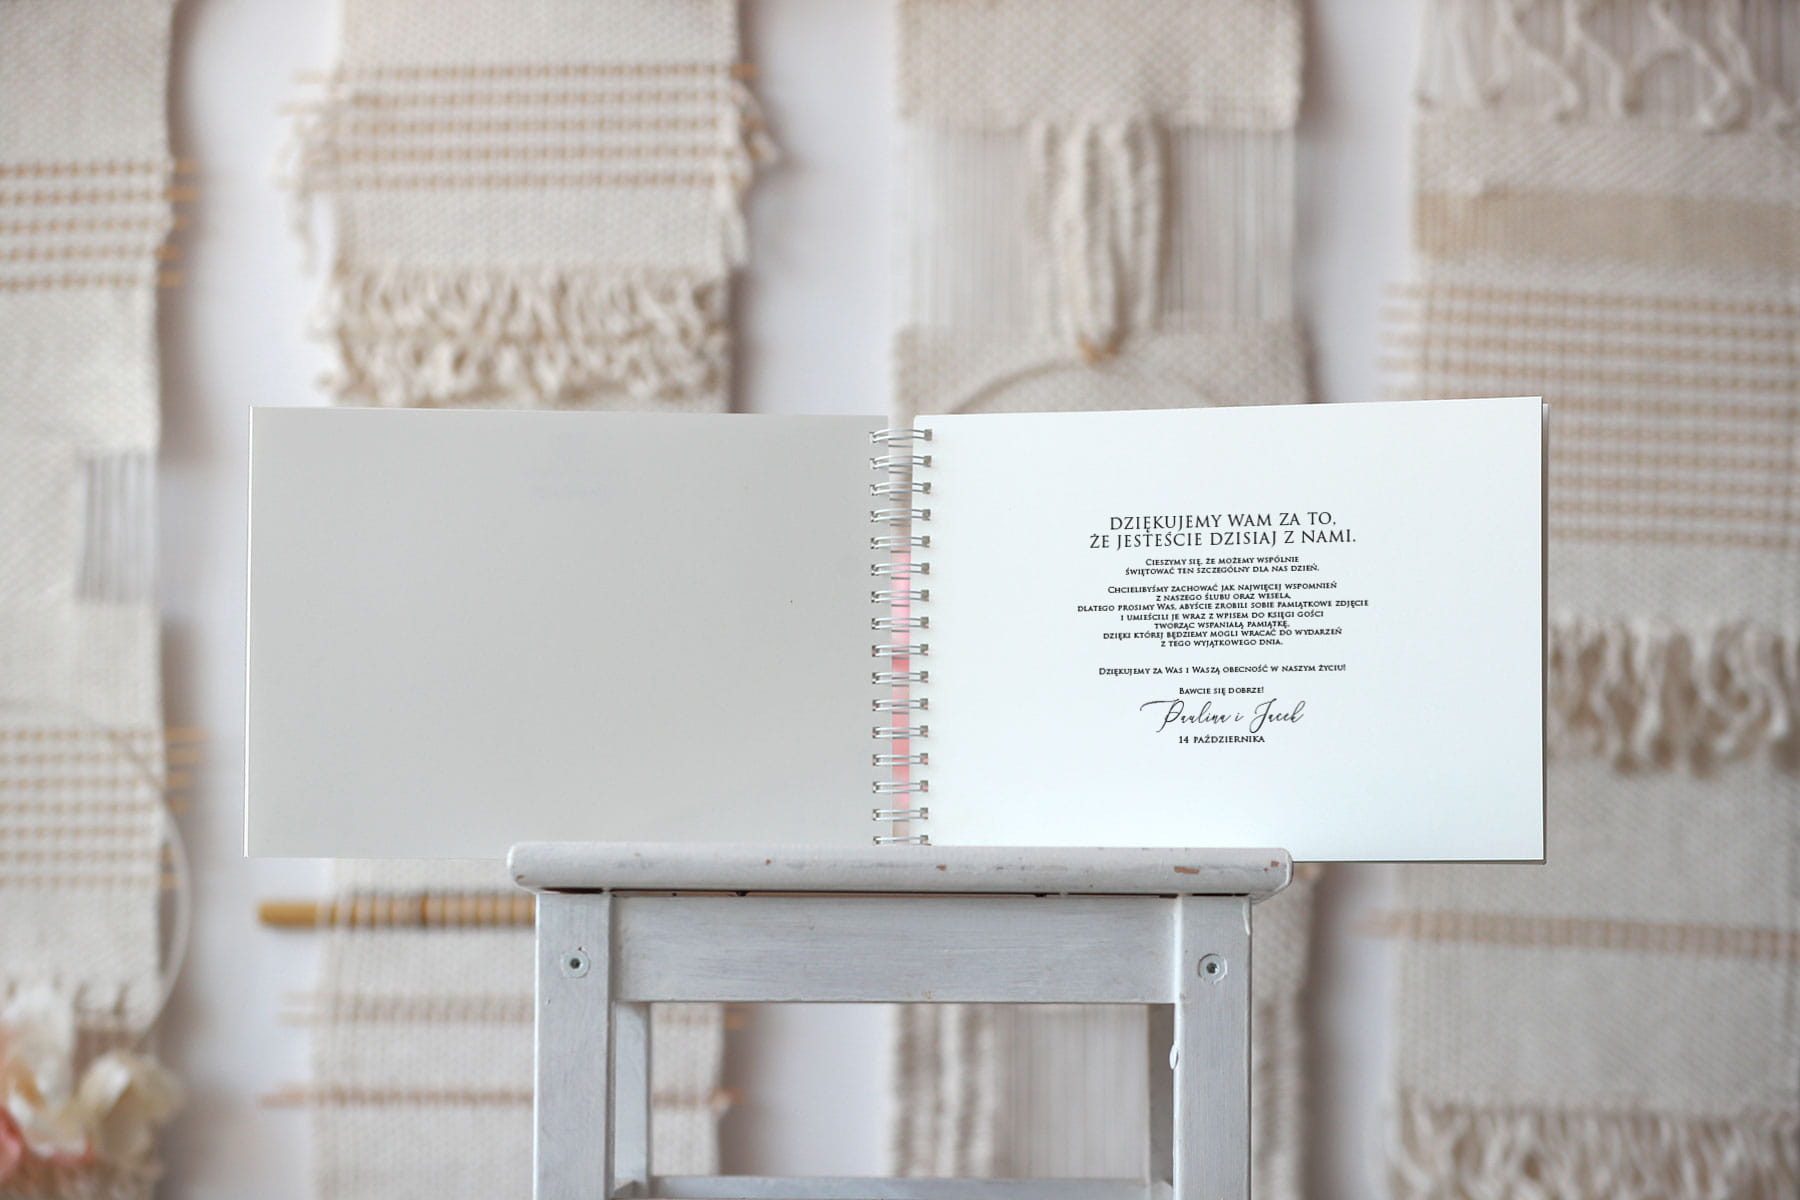 DZIĘKUJEMY WAM ZA TO,
ŻE JESTEŚCIE DZISIAJ Z NAMI.
CIESZYMY SIĘ, ŻE MOŻEMY WSPÓLNIE
ŚWIĘTOWAĆ TEN SZCZEGÓLNY DLA NAS DZIEŃ.
CHCIELIBYŚMY ZACHOWAĆ JAK NAJWIĘCEJ WSPOMNIEŃ
Z NASZEGO ŚLUBU ORAZ WESELA,
DLATEGO PROSIMY WAS, ABYŚCIE ZROBILI SOBIE PAMIĄTKOWE ZDJĘCIE
I UMIEŚCILI JE WRAZ Z WPISEM DO KSIĘGI GOŚCI
TWORZĄC WSPANIAŁĄ PAMIĄTKĘ,
DZIĘKI KTÓREJ BĘDZIEMY MOGLI WRACAĆ DO WYDARZEŃ
Z TEGO WYJĄTKOWEGO DNIA.
DZIĘKUJEMY ZA WAS I WASZĄ OBECNOŚĆ W NASZYM ŻYCIU!
BAWCIE SIĘ DOBRZE!
Paulina i Jacek
14 PAŹDZIERNIKA